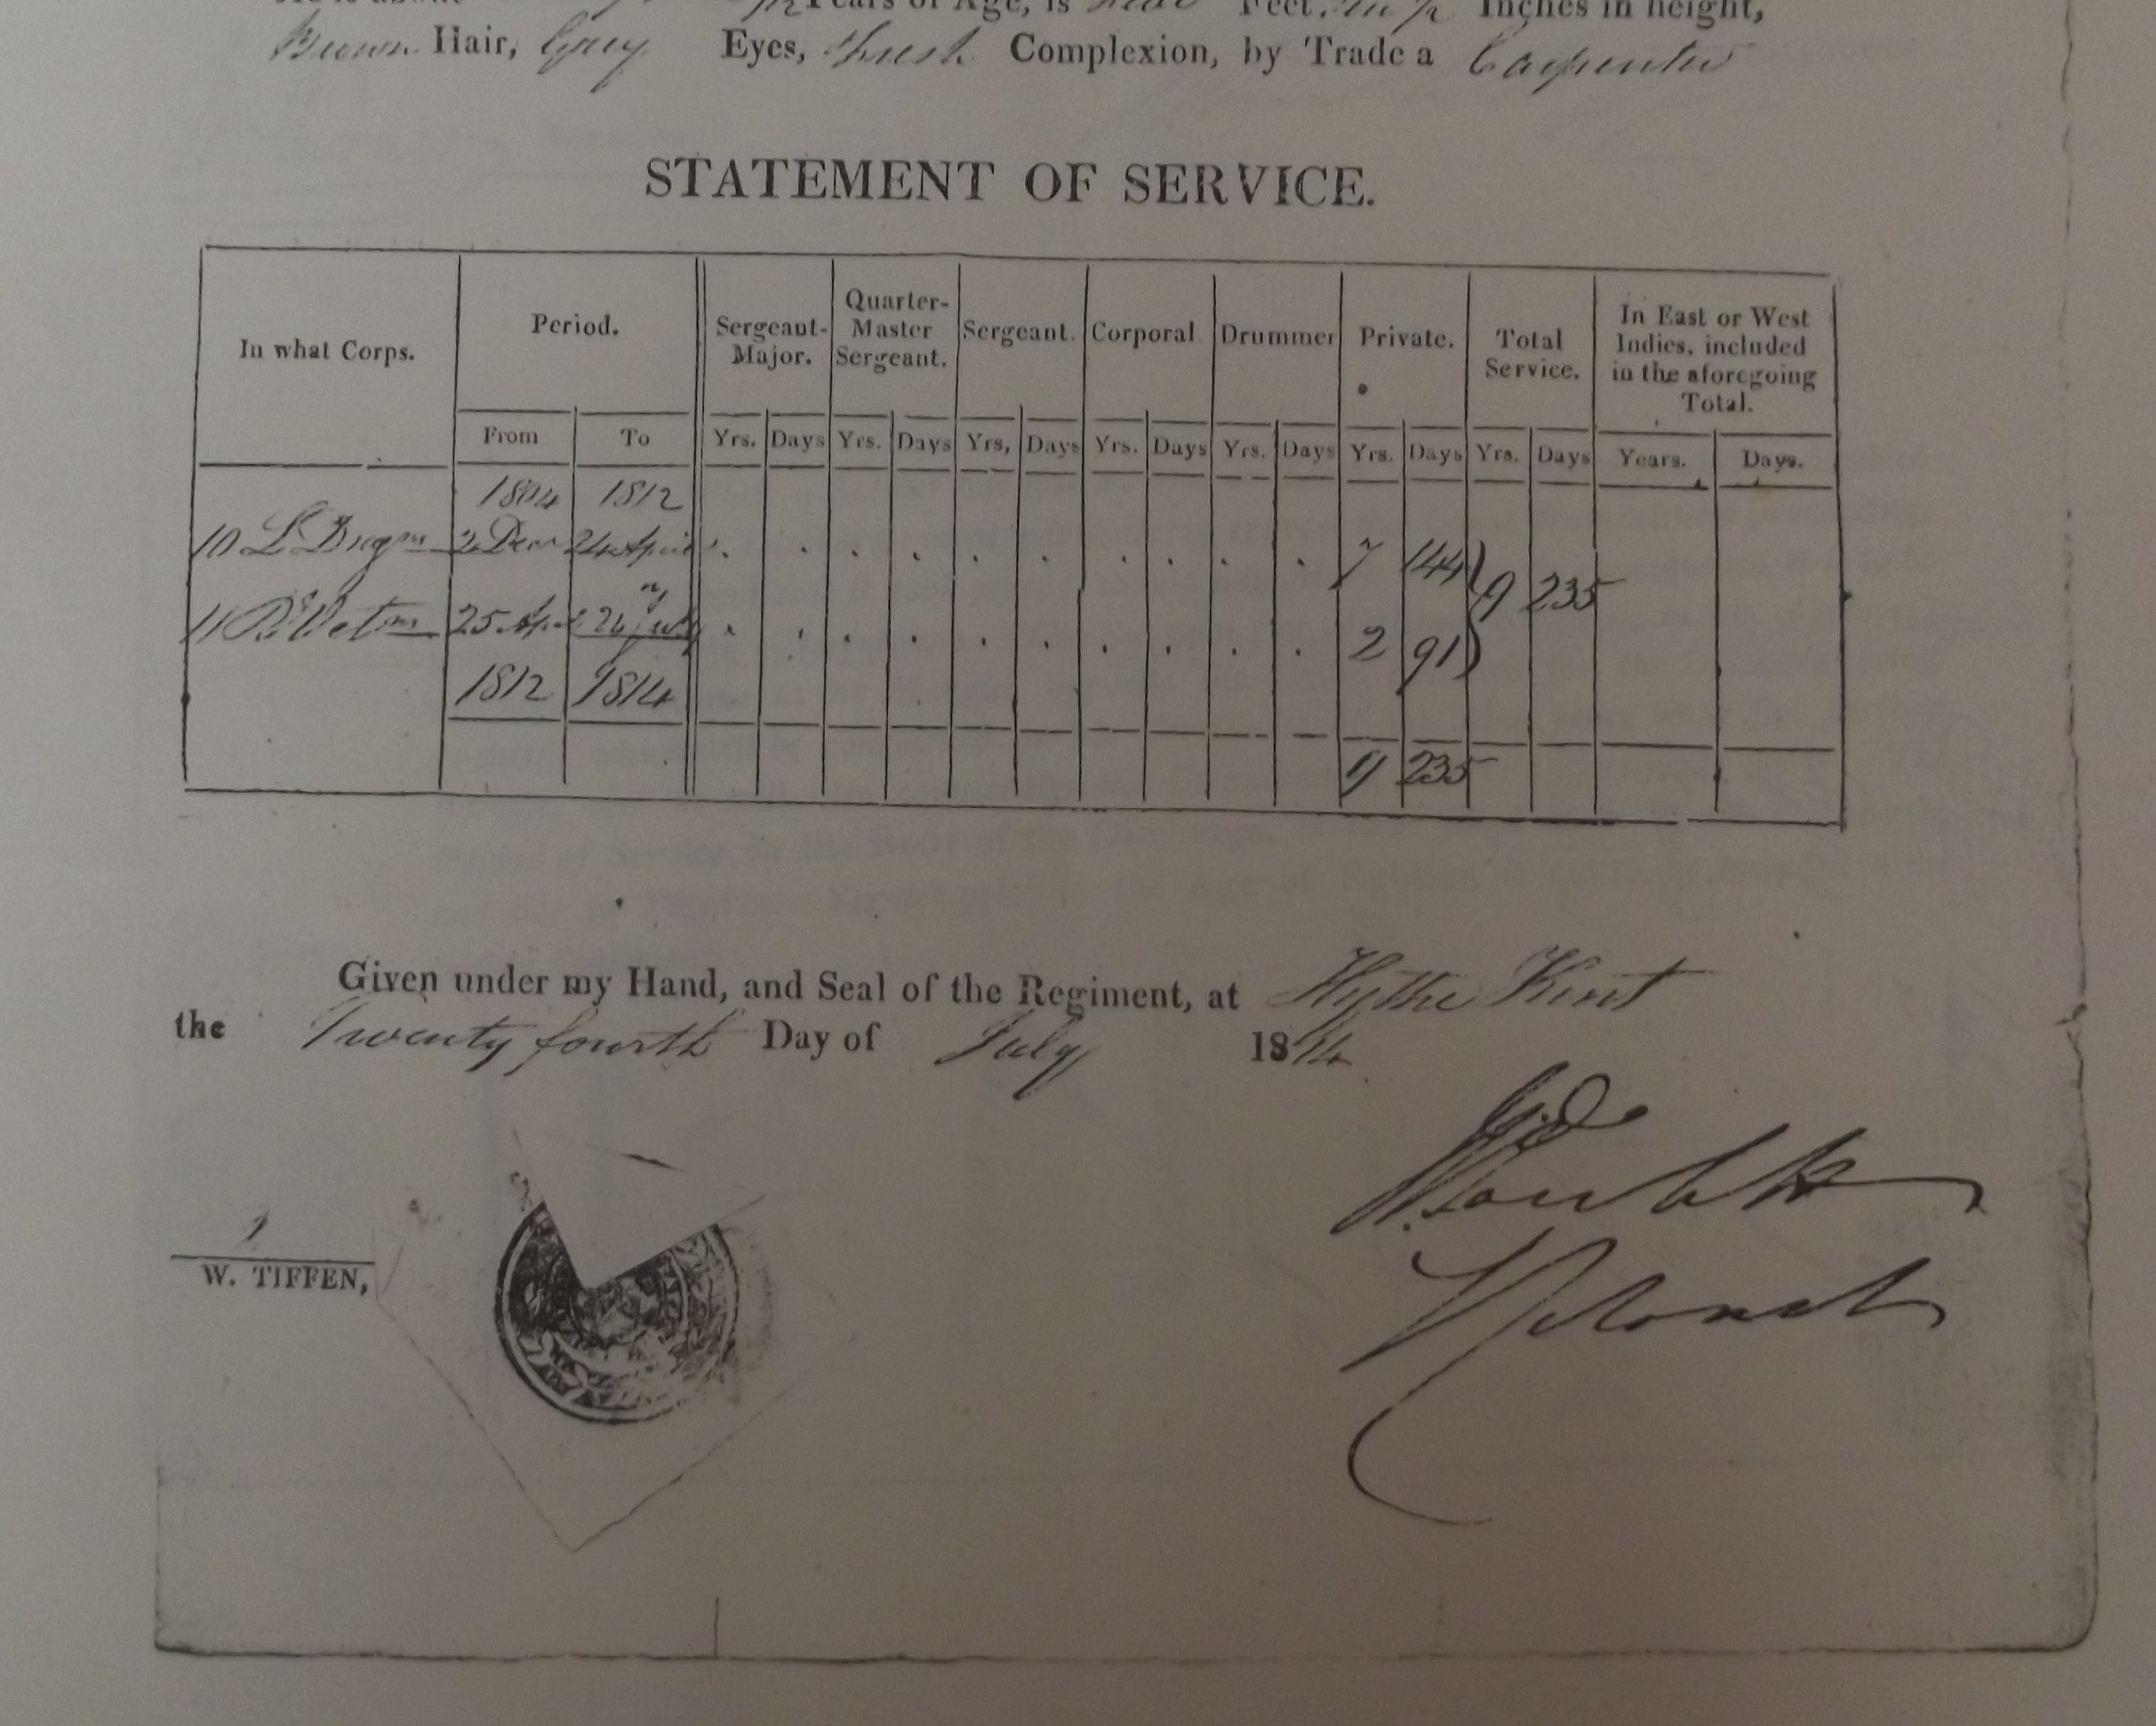 Years of Age, is Feet, Inches in height,
Brown Hair, Grey Eyes, fresh Complexion, by Trade a Carpenter
STATEMENT OF SERVICE.
In what Corps. Period. Sergeant-Major. Quarter-Master Sergeant. Sergeant. Corporal. Drummer Private. Total Service. In East or West Indies, included in the aforegoing Total.
From To Yrs. Days Yrs. Days Yrs, Days Yrs. Days Yrs. Days Yrs. Days Yrs. Days Years. Days.
1804 1812
10 Dec 24 April 7 144
9 235
11 25 Apl 24 July 2 91
1812 1814
9 235
Given under my Hand, and Seal of the Regiment, at Hythe Kent
the Twenty fourth Day of July 1814
W. TIFFEN,